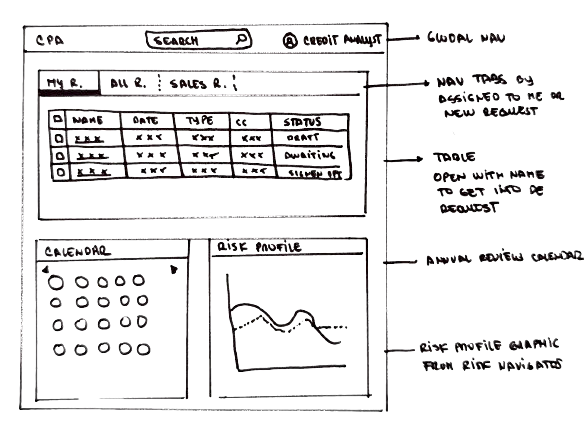 CPA SEARCH CREDIT ANALYST
GLOBAL NAV
MY R. ALL R. SALES R.
NAV TABS BY
ASSIGNED TO ME OR
NEW REQUEST
NAME DATE TYPE CC STATUS
XXX XXX XXX XXX DRAFT
XXX XXX XXX XXX AWAITING
XXX XXX XXX XXX SIGNED OFF
TABLE
OPEN WITH NAME
TO GET INTO DE
REQUEST
CALENDAR
RISK PROFILE
ANNUAL REVIEW CALENDAR
RISK PROFILE GRAPHIC
FROM RISK NAVIGATOR